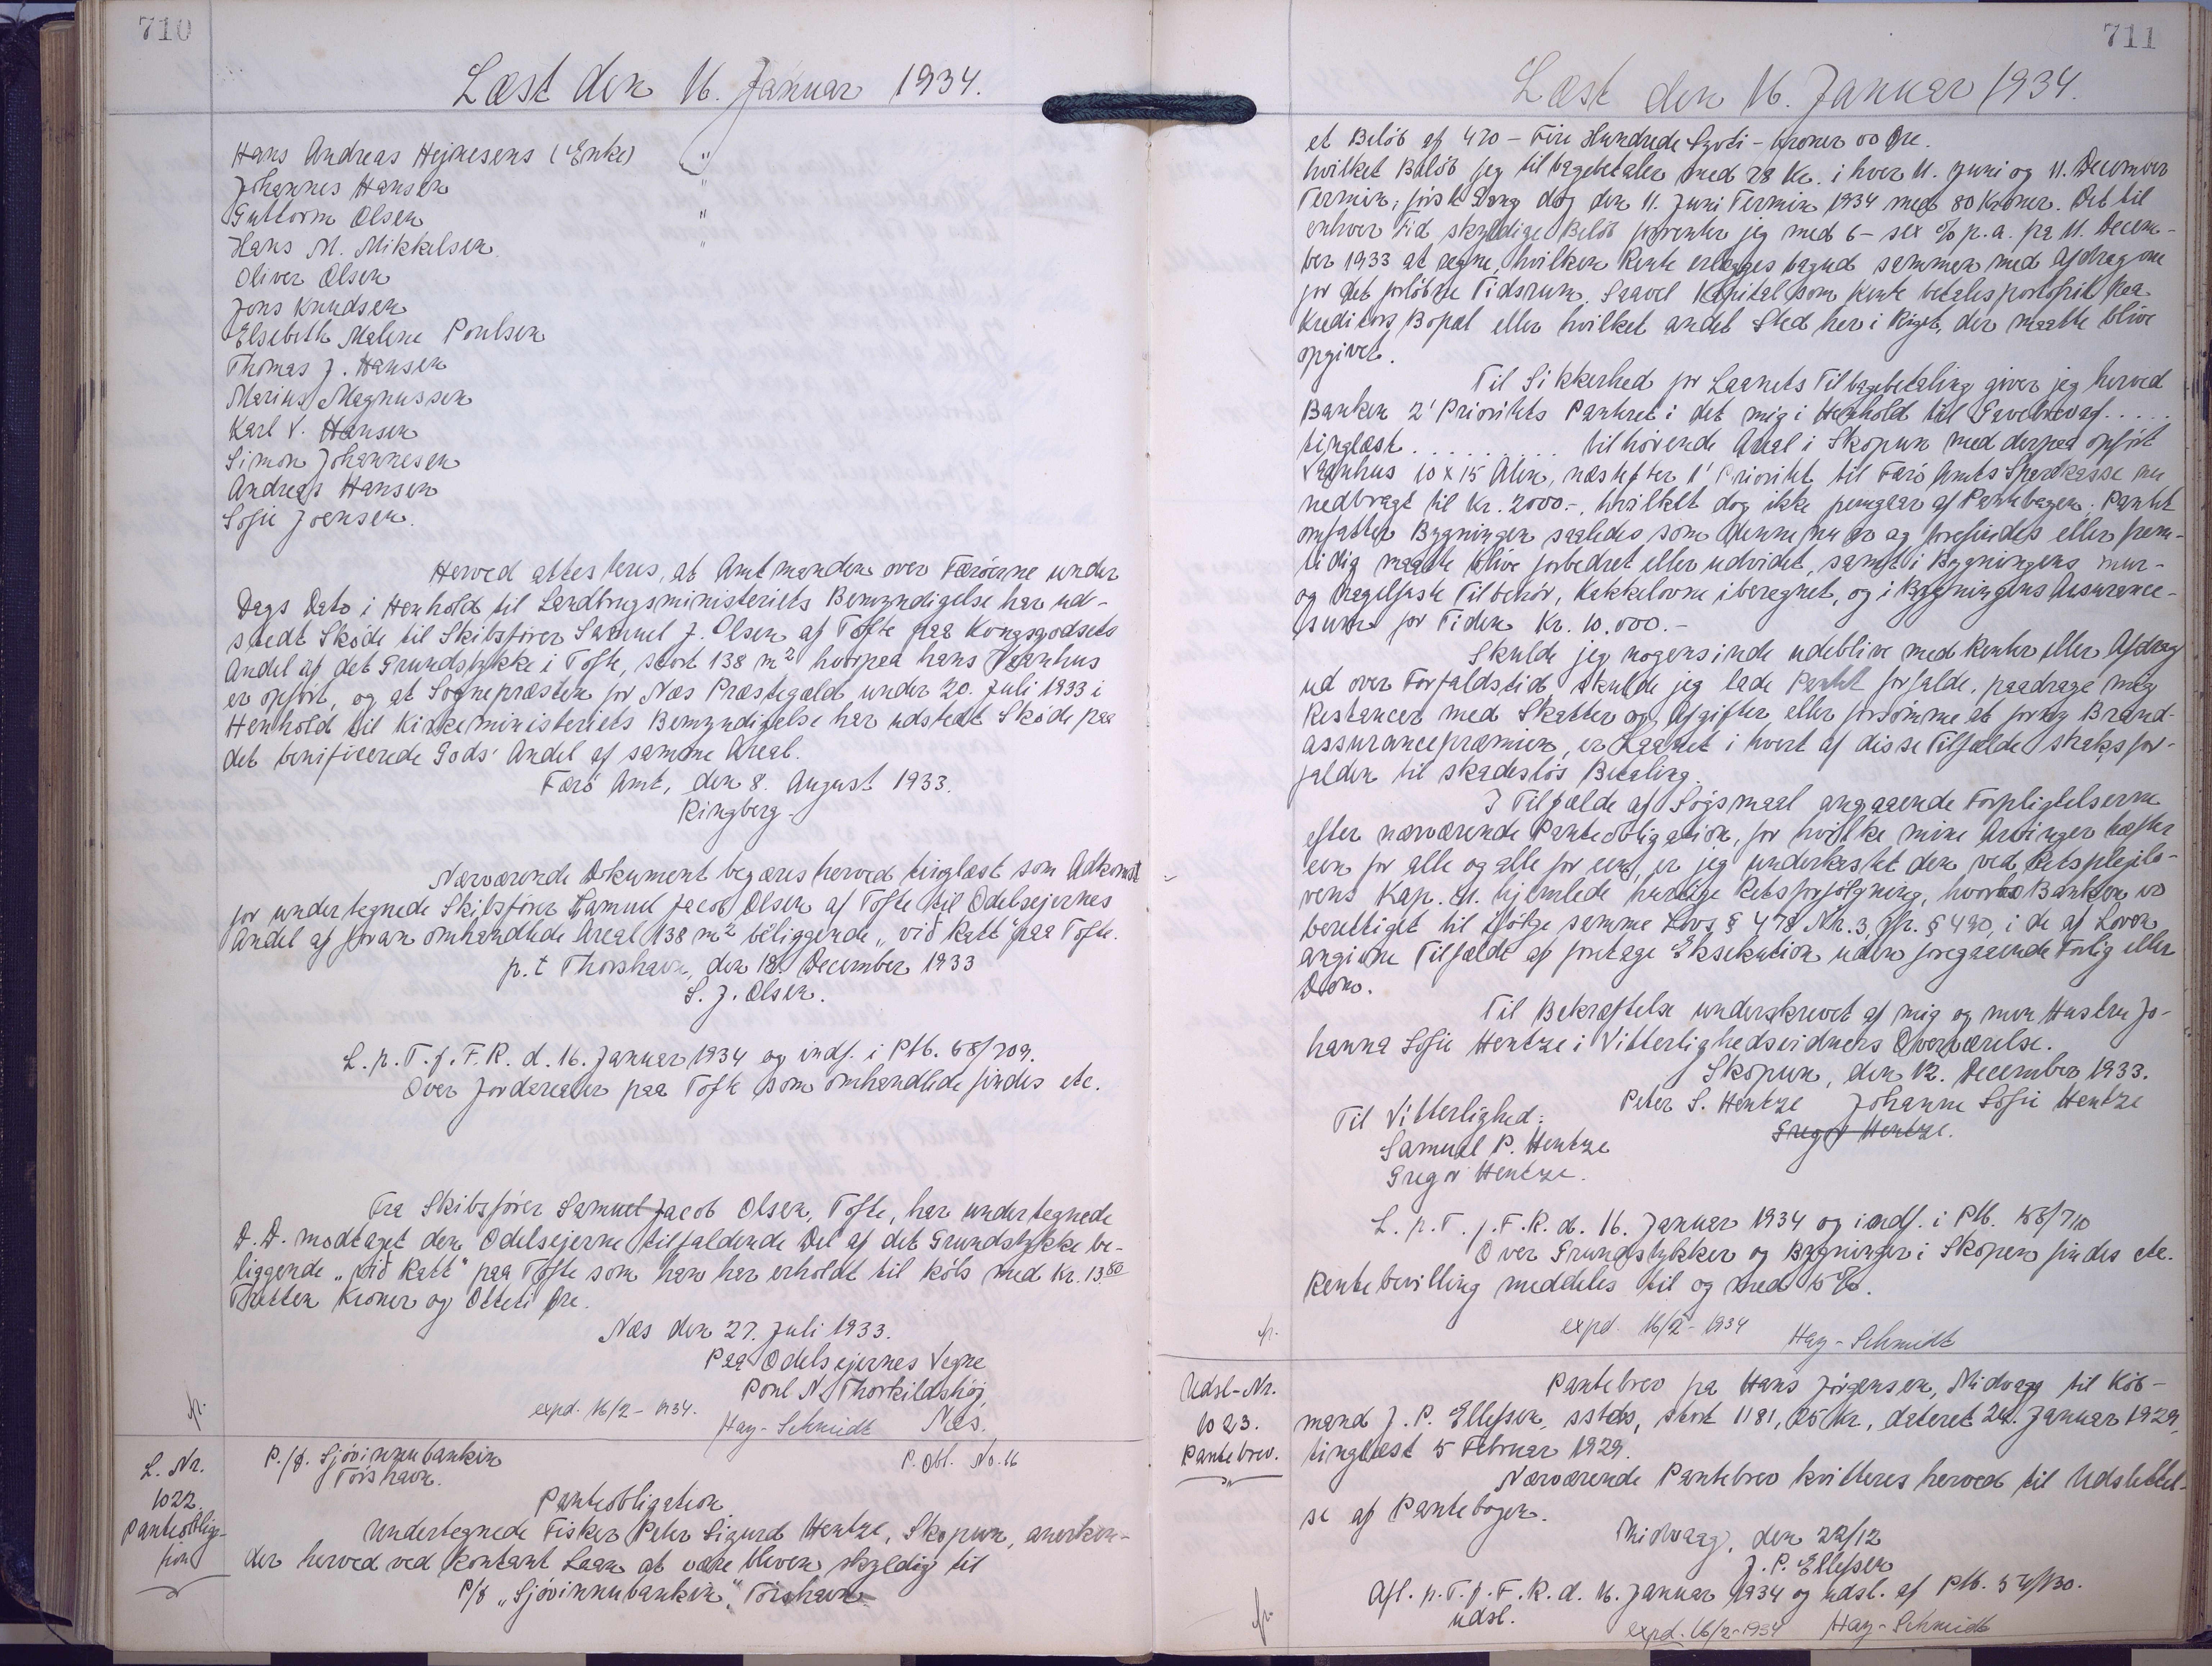 710
Læst den 16. Januar 1934.
Hans Andreas Hejnesens (Enke) "
Johannes Hansen "
Guttorm Olsen "
Hans M. Mikkelsen "
Oliver Olsen
Jens Knudsen
Elsebeth Malene Poulsen
Thomas J. Hansen
Marius Magnussen
Karl V. Hansen
Simon Johannesen
Andreas Hansen
Sofie Joensen.
Herved attesteres, at Amtmanden over Færöerne under
Dags Dato i Henhold til Landbrugsministeriets Bemyndigelse har ud-
stedt Sköde til Skibsförer Samuel J. Olsen af Tofte paa Kongsgodsets
Andel af det Grundstykke i Tofte, stort 138 m² hvorpaa hans Vaanhus
er opfört, og at Sognepræsten for Næs Præstegæld under 20. Juli 1933 i
Henhold til Kirkeministeriets Bemyndigelse har udstedt Sköde paa
det benificerede Gods' Andel af samme Areal.
Færö Amt, den 8. August 1933.
Ringberg.
Nærværende Dokument begæres herved tinglæst som Adkomst
for undertegnede Skibsförer Samuel Jacob Olsen af Tofte til Odelsejernes
Andel af foran omhandlede Areal 138 m² beliggende "við Rætt" paa Tofte.
p. t Thorshavn, den 18. December 1933
S. J. Olsen.
L. p. T. f. F. R. d. 16. Januar 1934 og indf. i Ptb. 58/709.
Over Jordarealer paa Tofte som omhandlede findes etc.
Fra Skibsförer Samuel Jacob Olsen, Tofte, har undertegnede
D. D. modtaget den Odelsejerne tilfaldende Del af det Grundstykke be-
liggende "við Rætt" paa Tofte som han har erholdt til köbs med Kr. 13.80
Tretten Kroner og Otteti Öre.
Næs den 27. Juli 1933.
Paa Odelsejernes Vegne
Poul N. Thorkildshöj,
Næs.
expd. 16/2-1934. Hay-Schmidt
L. Nr.
1022.
Panteobliga-
tion
P/f. Sjóvinnubankin
Tórshavn.
P. Obl. No. 16
Panteobligation
Undertegnede Fisker Peter Sigurd Hentze, Skopun, anerken-
der herved ved kontant Laan at være bleven skyldig til
P/f "Sjóvinnubankin", Tórshavn
711
Læst den 16. Januar 1934.
et Belöb af 420 - Fire Hundrede Tyvti - Kroner 00 Öre.
hvilket Belöb jeg tilbagebetaler med 28 Kr. i hver 11. Juni og 11. December
Termin, förste Gang dog den 11. Juni Termin 1934 med 80 Kroner. Det til
enhver Tid skyldige Belöb forrenter jeg med 6 - sex % p. a. fra 11. Decem-
ber 1933 at regne, hvilken Rente erlægges bagud sammen med Afdragene
for det forlöbne Tidsrum. Saavel Kapital som Rente betales portofrit paa
Kreditors Bopæl eller hvilket andet Sted her i Riget, der maatte blive
opgivet.
Til Sikkerhed for Laanets Tilbagebetaling giver jeg herved
Banken 2' Prioritets Panteret i det mig i Henhold til Gavebrev af . . . . .
tinglæst . . . . . . . . . tilhörende Areal i Skopun med derpaa opfört
Vaanhus 10 x 15 Alen, næstefter 1' Prioritet til Færö Amts Sparekasse nu
nedbragt til Kr. 2000.-, hvilket dog ikke fremgaar af Pantebogen. Pantet
omfatter Bygningen saaledes som denne nu er og forefindes eller frem-
tidig maatte blive forbedret eller udvidet, samt i Bygningens mur-
og nagelfaste Tilbehör, Kakkelovne iberegnet, og i Bygningens Assurance-
sum for Tiden Kr. 10.000.-
Skulde jeg nogensinde udeblive med Renter eller Afdrag
ud over Forfaldstid, skulde jeg lade Pantet forfalde, paadrage mig
Restancer med Skatter og Afgifter eller forsömme at forny Brand-
assurancepræmien, er Laanet i hvert af disse Tilfælde straks for-
falden til skadeslös Betaling.
I Tilfælde af Sögsmaal angaaende Forpligtelserne
efter nærværende Panteobligation, for hvilke mine Arvinger hæfter
een for alle og alle for een, er jeg underkastet den ved Retsplejelo-
vens Kap. 41. hjemlede hurtige Retsforfölgning, hvorhos Banken er
berettiget til ifölge samme Lovs § 478 Nr. 3, jfr. § 490, i de af Loven
angivne Tilfælde at foretage Eksekution uden foregaaende Forlig eller
Dom.
Til Bekræftelse underskrevet af mig og min Hustru Jo-
hanna Sofie Hentze i Vitterlighedsvidners Overværelse.
Skopun, den 12. December 1933.
Peter S. Hentze Johanne Sofie Hentze
Gregor Hentze.
Til Vitterlighed:
Samuel P. Hentze
Gregor Hentze.
L. p. T. f. F. R. d. 16. Januar 1934 og indf. i Ptb. 58/710
Over Grundstykker og Bygninger i Skopun findes etc.
Rentebevilling meddeles til og med 5 %.
expd. 16/2-1934 Hay-Schmidt
Udsl-Nr.
1023.
Pantebrev.
Pantebrev fra Hans Jörgensen, Midvaag til Köb-
mand J. P. Ellefsen, sstds, stort 1181,25 Kr, dateret 24. Januar 1929,
tinglæst 5 Februar 1929.
Nærværende Pantebrev kvitteres herved til Udslettel-
se af Pantebogen.
Midvaag, den 22/12
J. P. Ellefsen
Afl. p. T. f. F. R. d. 16. Januar 1934 og udsl. af Ptb. 54/130.
udsl.
expd. 16/2-1934 Hay-Schmidt